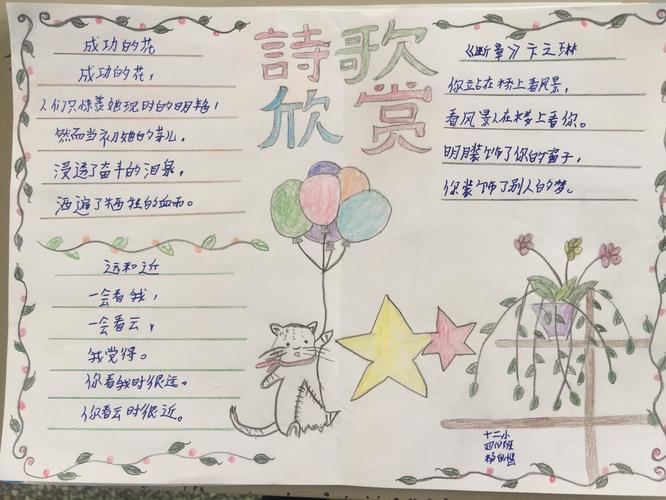 詩歌
欣赏
成功的花
成功的花,
人们只惊羡她现时的明艳!
然而当初她的芽儿,
浸透了奋斗的泪泉,
洒遍了牺牲的血雨。
远和近
一会看我,
一会看云,
我觉得。
你看我时很远。
你看云时很近。
《断章》卞之琳
你站在桥上看风景,
看风景人在楼上看你。
明月装饰了你的窗子,
你装饰了别人的梦。
十二小